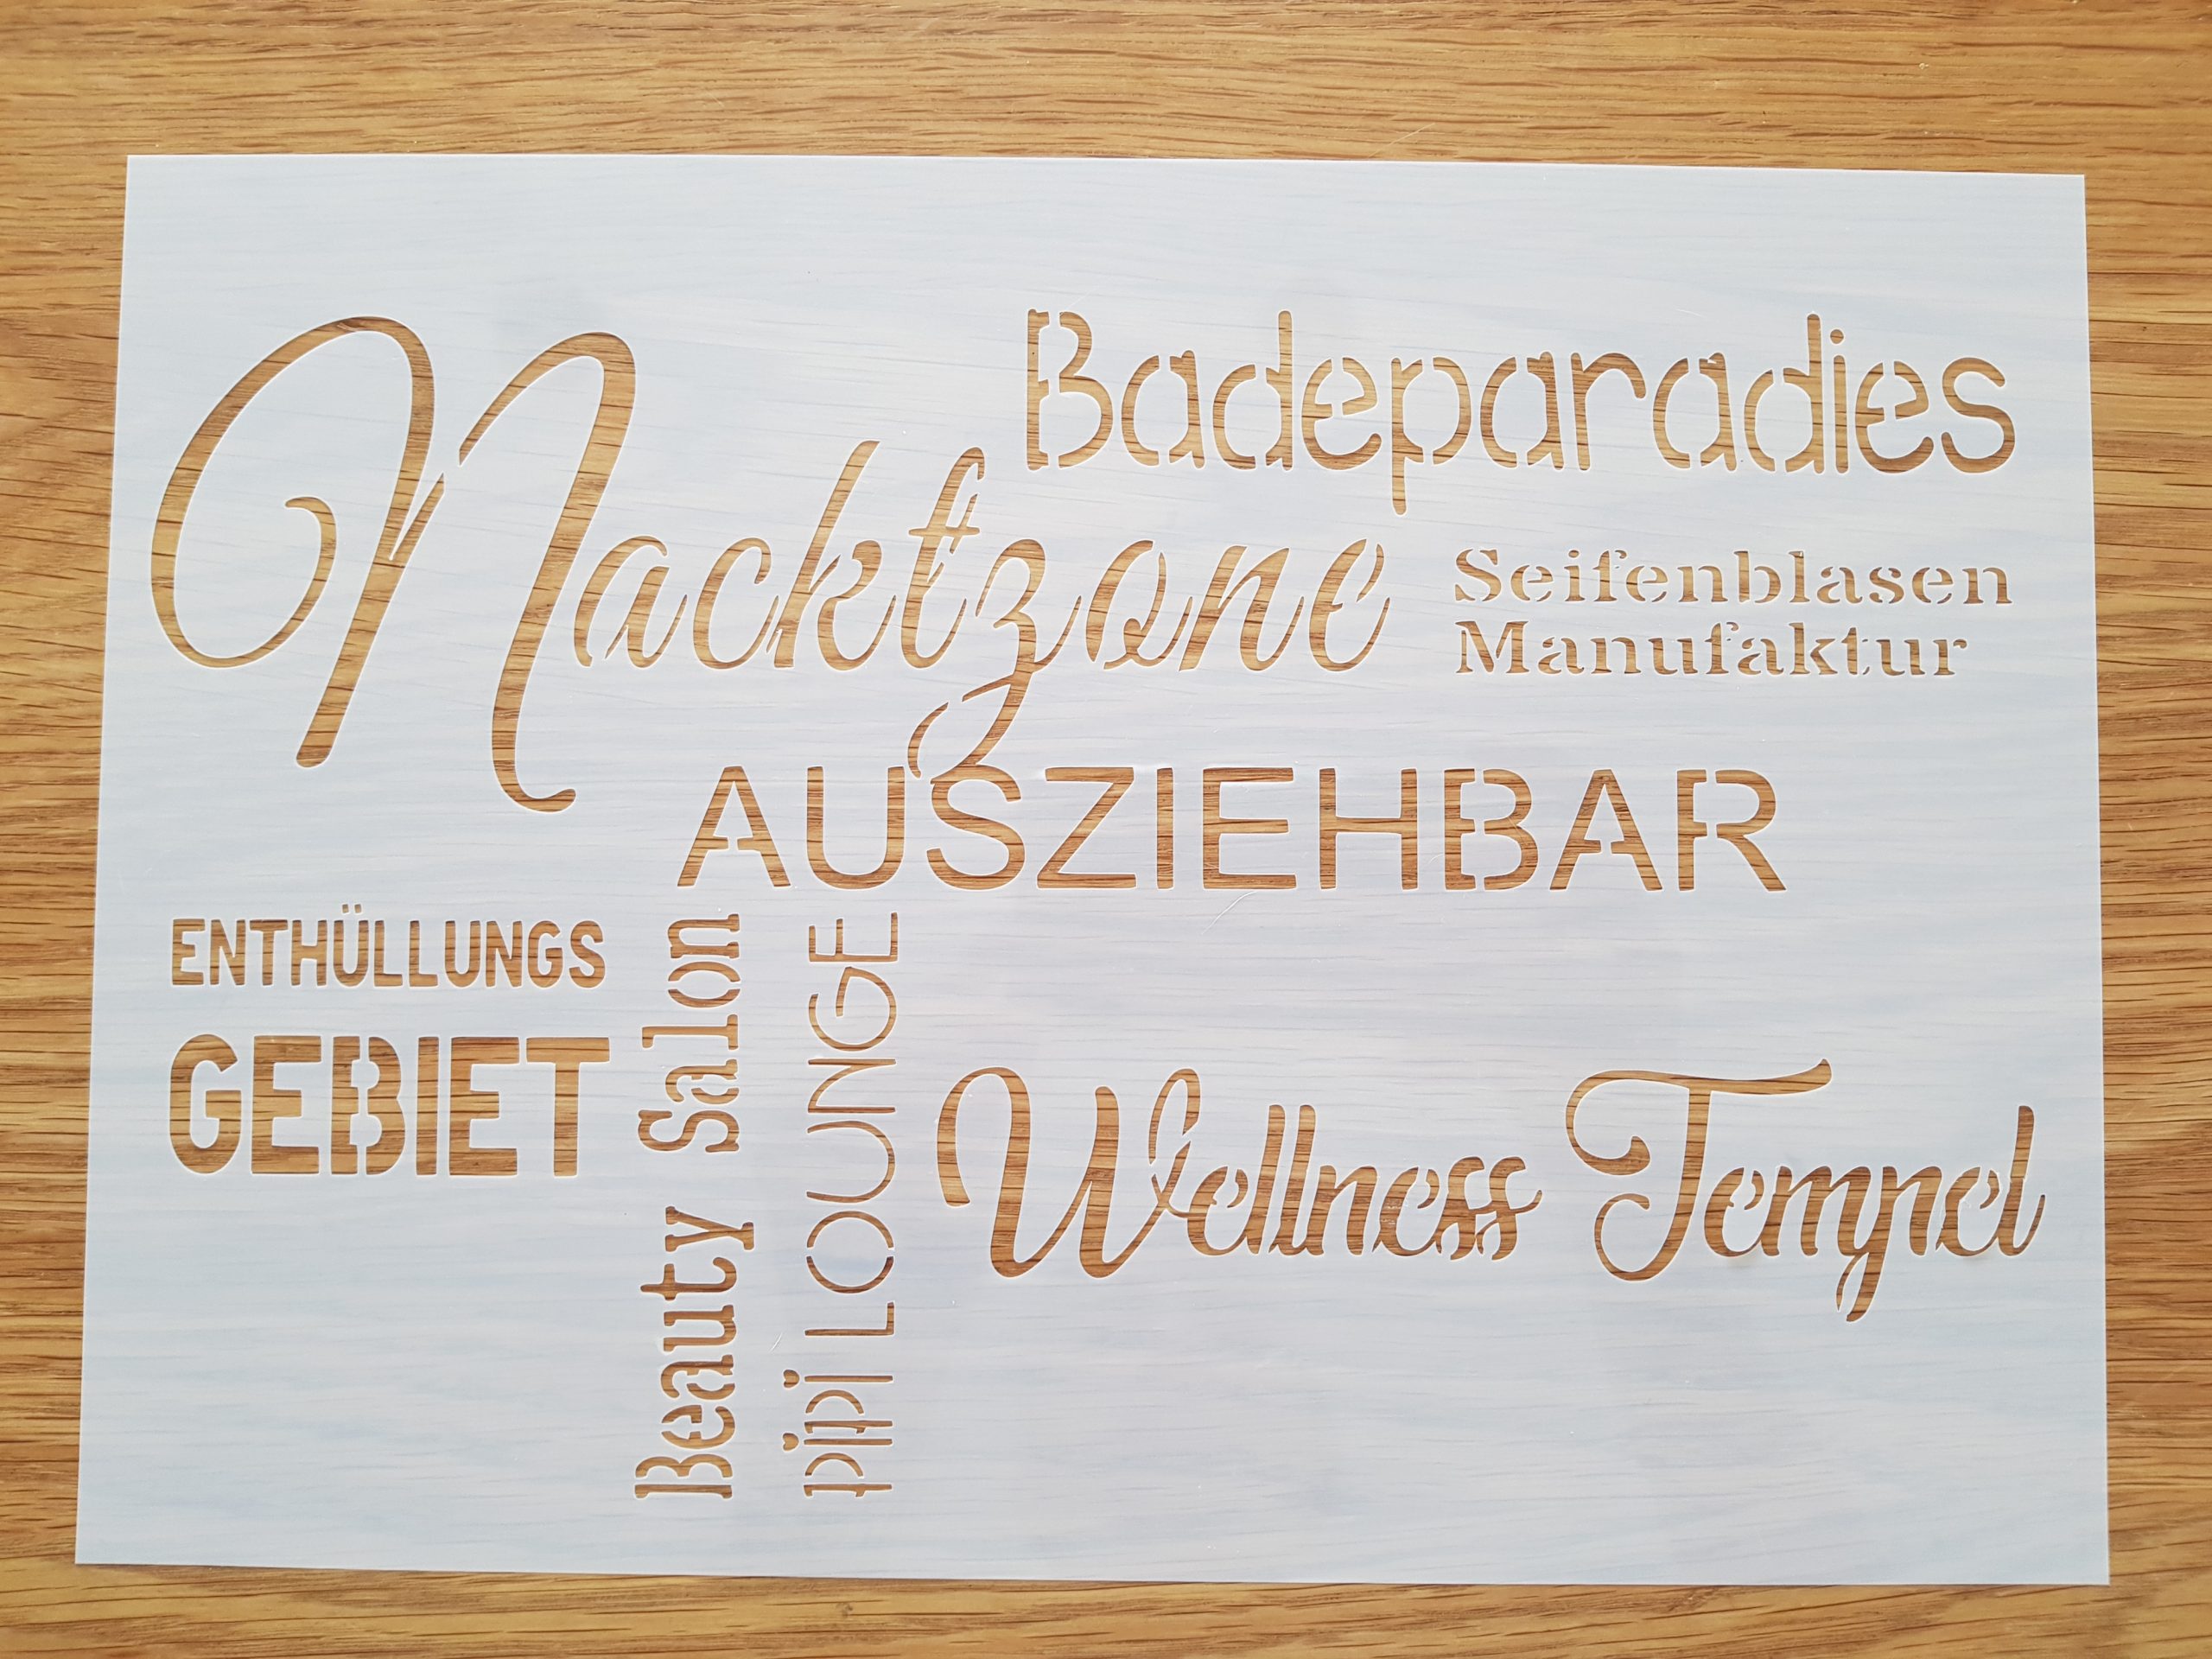 Badeparadies
Nacktzone
Seifenblasen
Manufaktur
AUSZIEHBAR
ENTHÜLLUNGS
GEBIET
Beauty Salon
pipi LOUNGE
Wellness Tempel